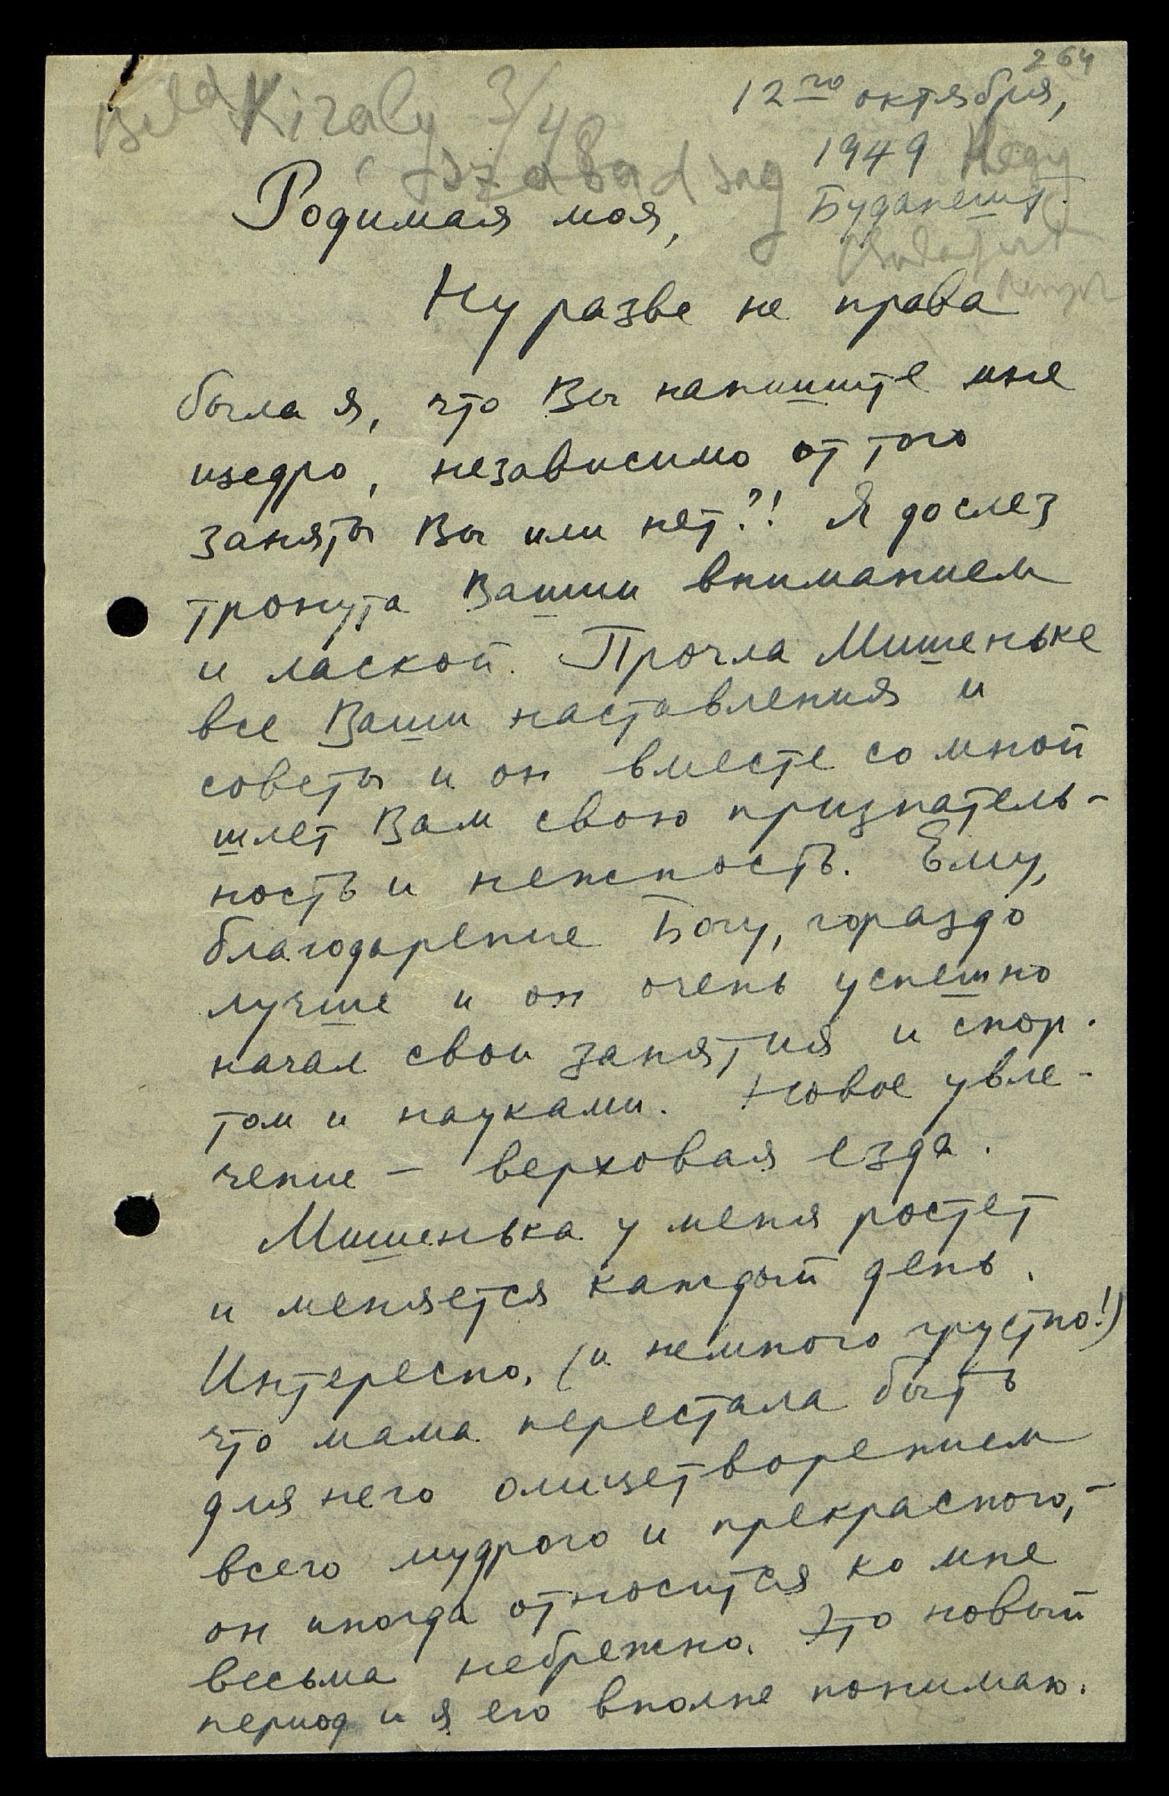 264
12го октября,
1949
Будапешт.
Király 3/48
Szabadság Hegy
Родимая моя,
Ну разве не права
была я, что Вы напишите мне
щедро, независимо от того
заняты Вы или нет?! Я до слез
тронута Вашим вниманием
и лаской. Прочла Мишеньке
все Ваши наставления и
советы и он вместе со мной
шлет Вам свою признатель-
ность и нежность. Ему,
благодарение Богу, гораздо
лучше и он очень успешно
начал свои занятия и спор-
том и науками. Новое увле-
чение — верховая езда.
Мишенька у меня ростет
и меняется каждый день.
Интересно, (и немного грустно!)
что мама перестала быть
для него олицетворением
всего мудрого и прекрасного, —
он иногда относится ко мне
весьма небрежно. Это новый
период и я его вполне понимаю.